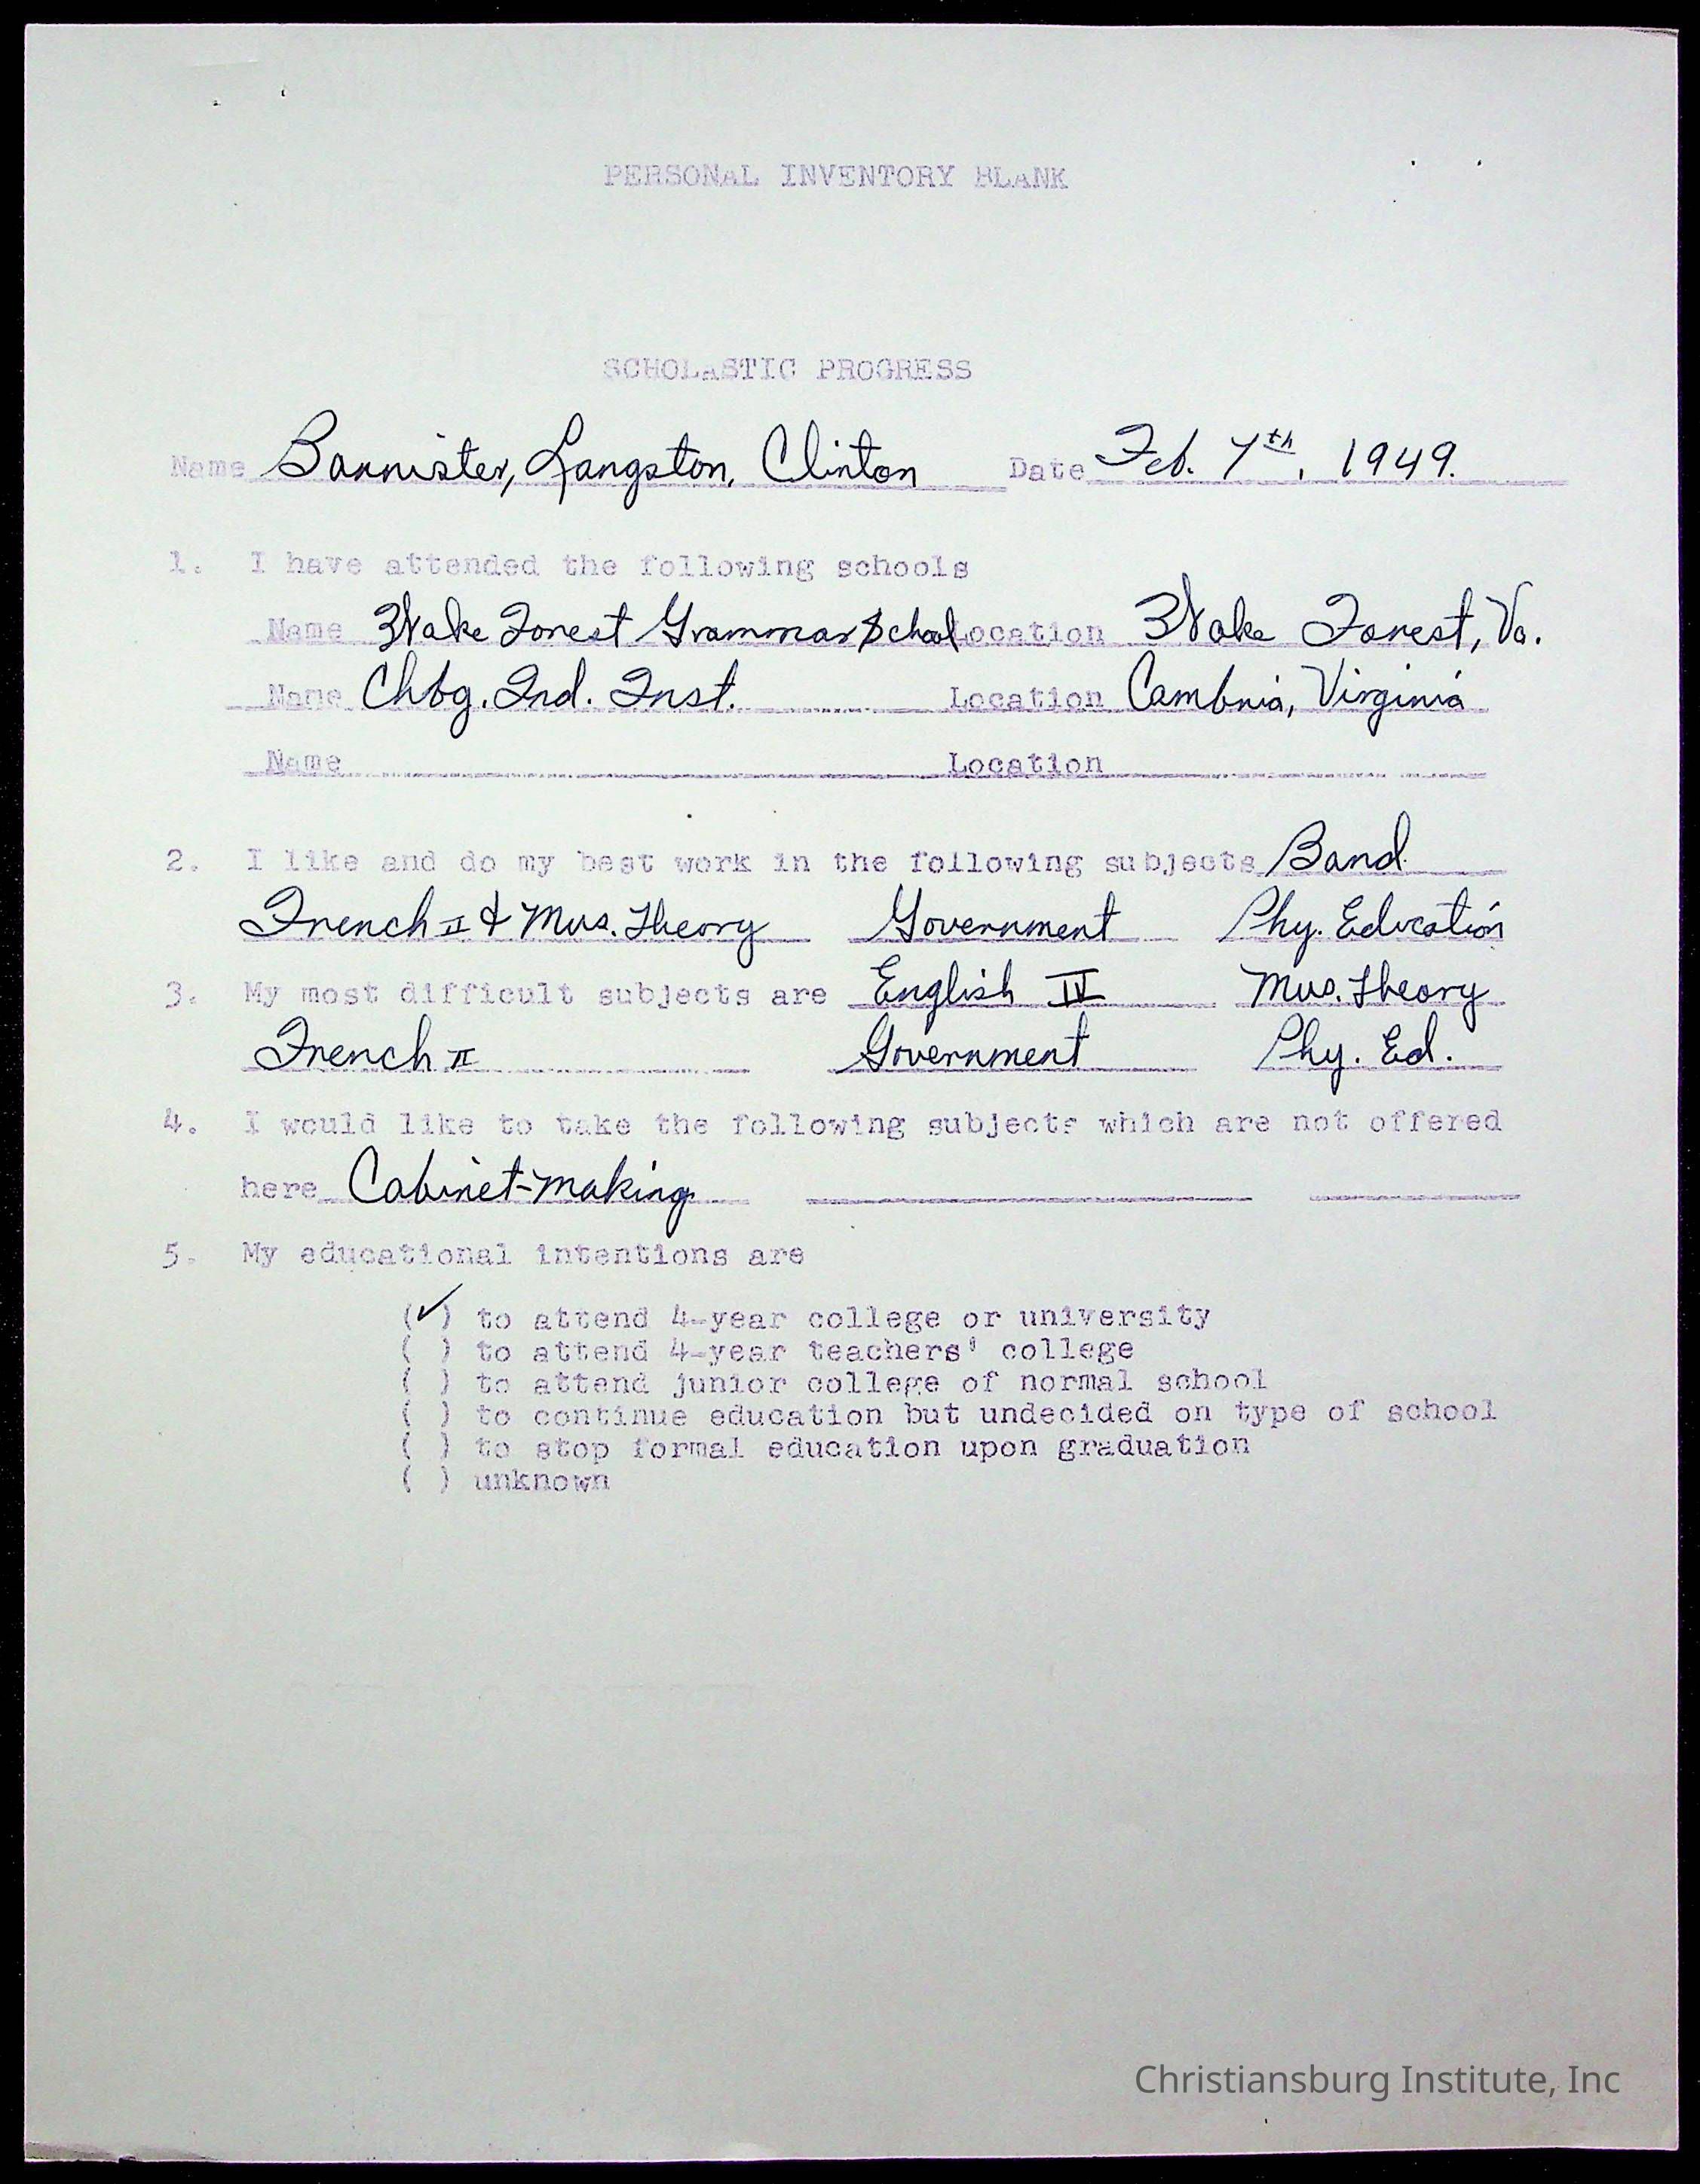 PERSONAL INVENTORY BLANK
SCHOLASTIC PROGRESS
Name Bannister, Langston, Clinton Date Feb. 7th, 1949.
1. I have attended the following schools
Name Wake Forest Grammar School Location Wake Forest, Va.
Name Chbg. Ind. Inst. Location Cambria, Virginia
Name Location
2. I like and do my best work in the following subjects Band
French II & Mus. Theory Government Phy. Education
3. My most difficult subjects are English IV Mus. Theory
French II Government Phy. Ed.
4. I would like to take the following subjects which are not offered
here Cabinet-making
5. My educational intentions are
(✓) to attend 4-year college or university
( ) to attend 4-year teachers' college
( ) to attend junior college of normal school
( ) to continue education but undecided on type of school
( ) to stop formal education upon graduation
( ) unknown
Christiansburg Institute, Inc